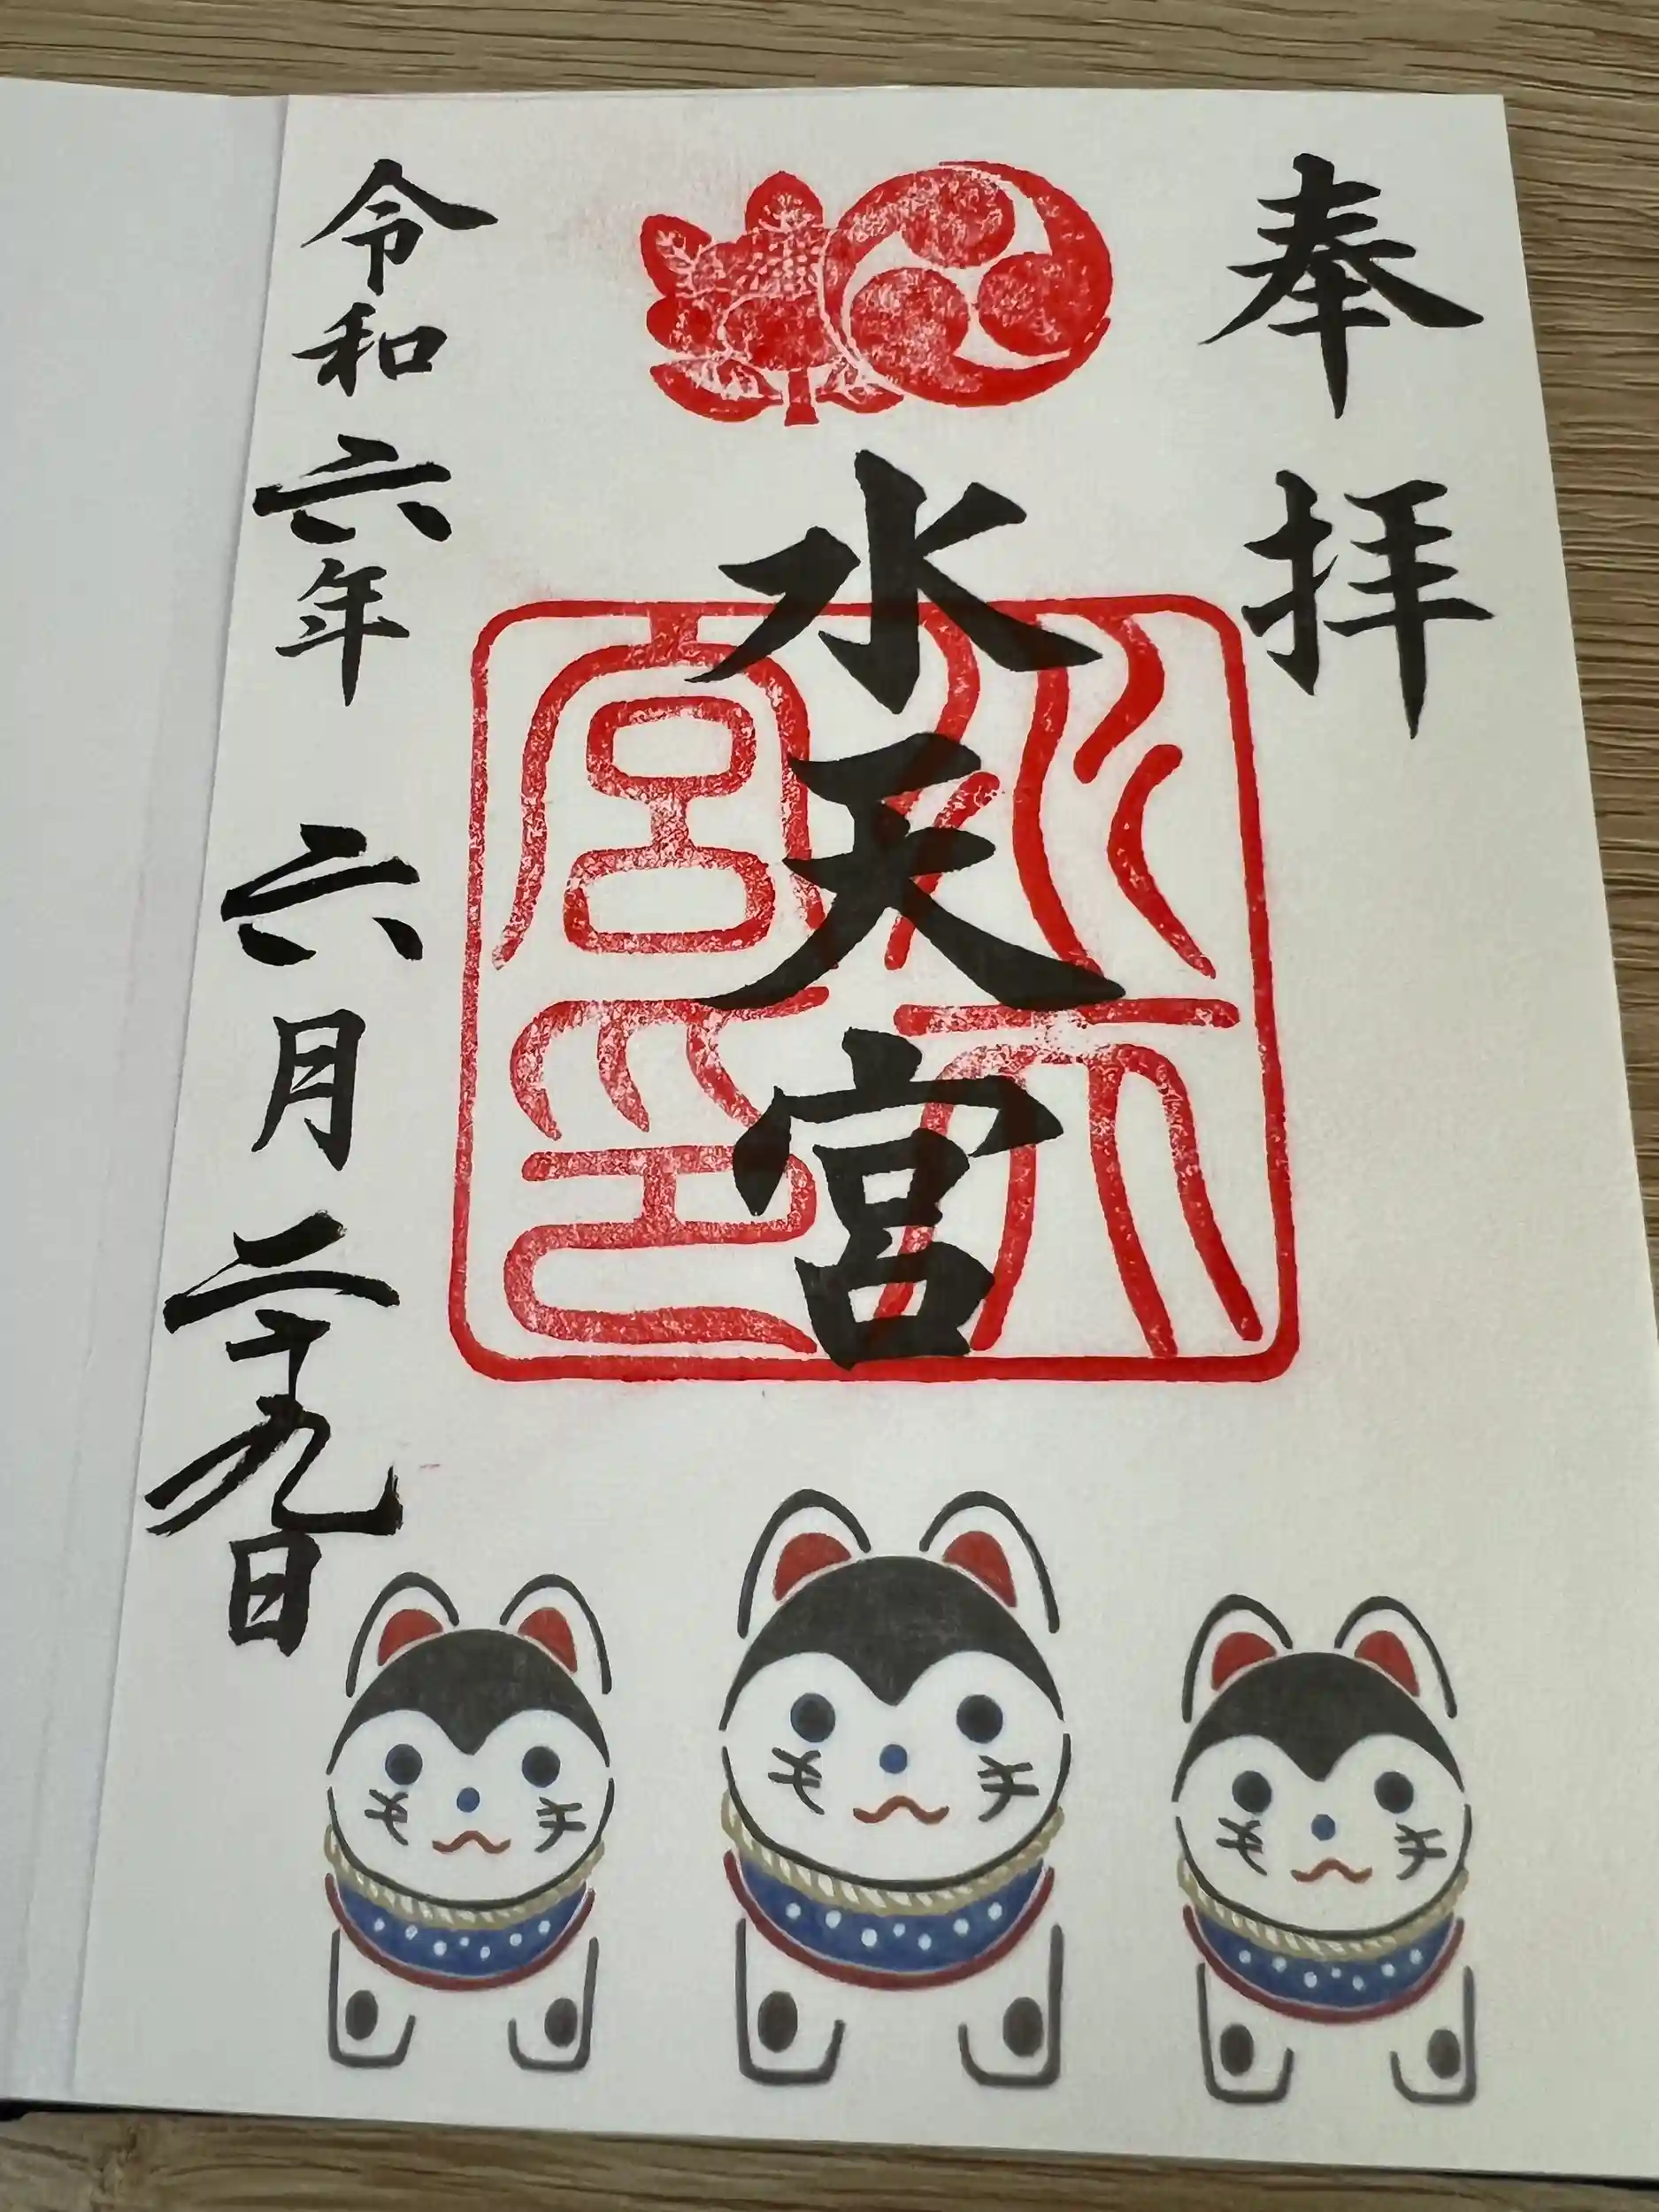 奉拝
水天宮
水天宮印
令和六年 六月二十九日